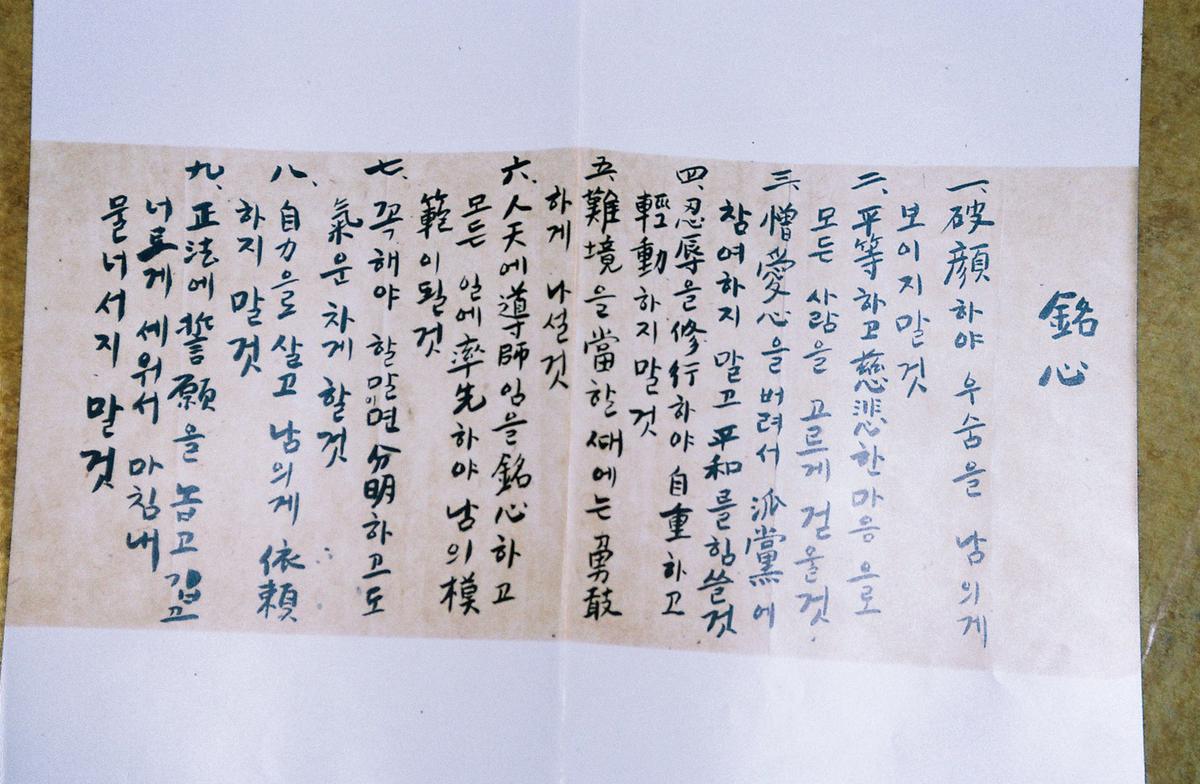 銘心
一、破顔하야 우숨을 남의게
보이지말것
二、平等하고慈悲한마음으로
모든 사람을 고르게 걷울것.
三、憎愛心을버려서 派黨에
참여하지 말고平和를힘쓸것
四、忍辱을修行하야自重하고
輕動하지말것
五、難境을當한때에는勇敢
하게 나설것
六、人天에導師임을銘心하고
모든 일에率先하야 남의模
範이될것
七、꼭해야 할말이면分明하고도
氣운차게 할것
八、自力으로살고 남의게 依賴
하지 말것
九、正法에誓願을놉고 깁고
너르게세워서 마침내
물너서지 말것